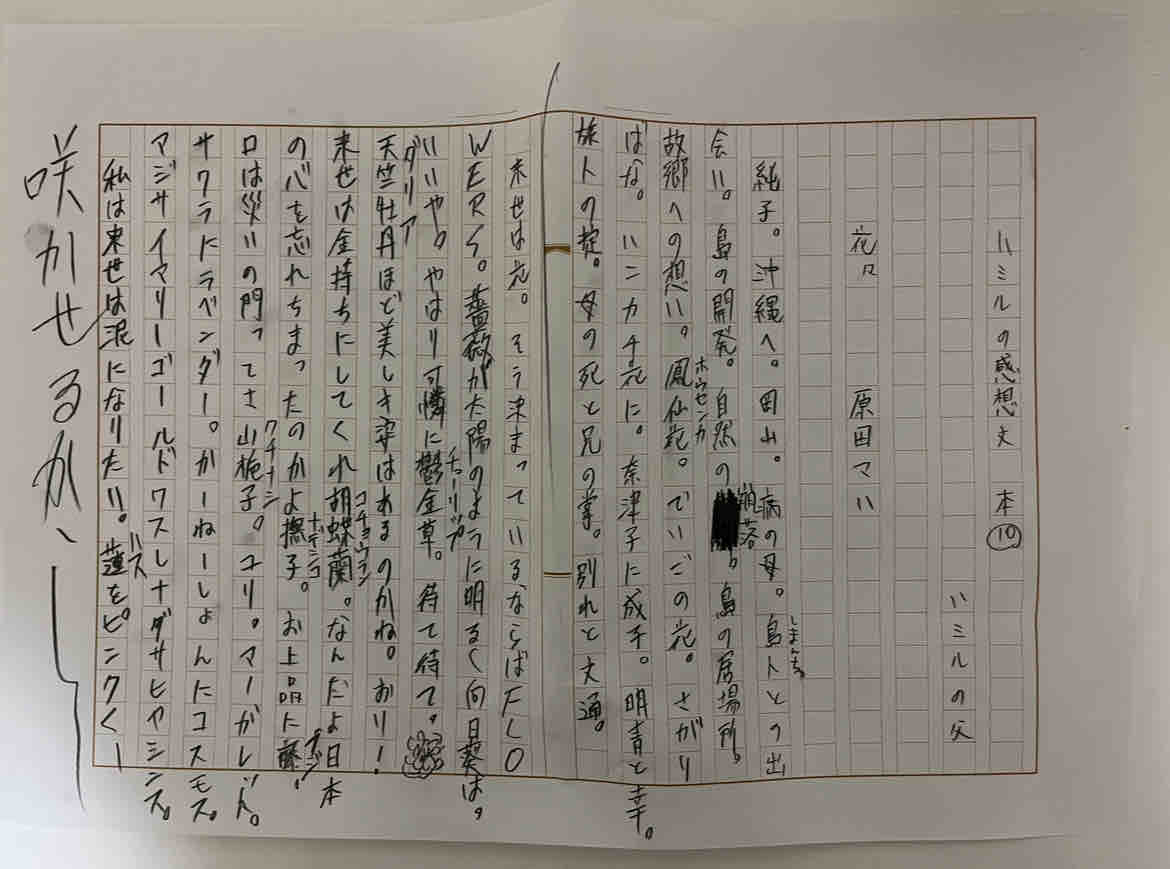 ハミルの感想文 本⑩
ハミルの父
花々 原田マハ
純子。沖縄へ。田山。病の母。島人との出
しまんちゅ
会い。島の開発。自然の崩落。島の居場所。
故郷への想い。鳳仙花。でいごの花。さがり
ホウセンカ
ばな。ハニカチ花に。奈津子に成子。明青と幸。
旅人の掟。母の死と兄の掌。別れと大通。
来世は花。そう決まっているならばFLO
WERS。薔薇が太陽のように明るく向日葵は。
いいや。やはり可憐に鬱金草。待て待て。
チューリップ
天竺牡丹ほど美しき姿はあるのかね。おり!
ダリア
来世は金持ちにしてくれ胡蝶蘭。なんだよ日本
コチョウラン
の心を忘れちまったのかよ撫子。お上品に藤。
ナデシコ
フジ
口は災いの門ってさ山梔子。ユリ。マーガレット。
クチナシ
サクラにラベンダー。かーねーしょんにコスモス。
アジサイマリーゴールドワスレナグサヒヤシンス。
私は来世は泥になりたい。蓮をピンクくー
ハス
咲かせるから